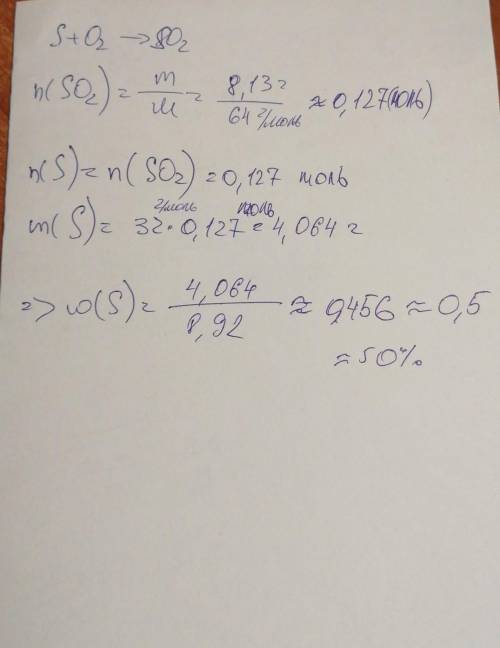 S + O₂ → SO₂
n(SO₂) = m/M = 8,13 г / 64 г/моль ≈ 0,127 (моль)
n(S) = n(SO₂) = 0,127 моль
m(S) = 32 г/моль · 0,127 моль = 4,064 г
=> ω(S) = 4,064 / 8,92 ≈ 0,456 ≈ 0,5
≈ 50%